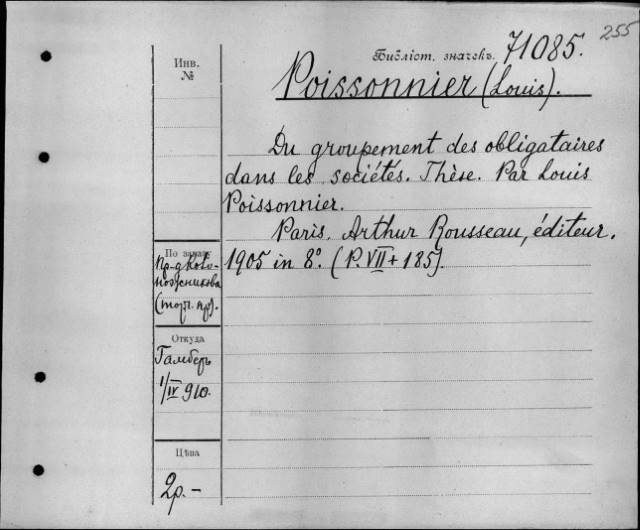 255
Библіот. значекъ 71085.
Инв.
№
Poissonnier (Louis).
Du groupement des obligataires
dans les sociétés. Thèse. Par Louis
Poissonnier.
Paris. Arthur Rousseau, éditeur.
1905 in 8°. (P. VII + 185).
По заказу
(торг. пр).
Откуда
Гамберъ
1/IV 910.
Цѣна
2р. -